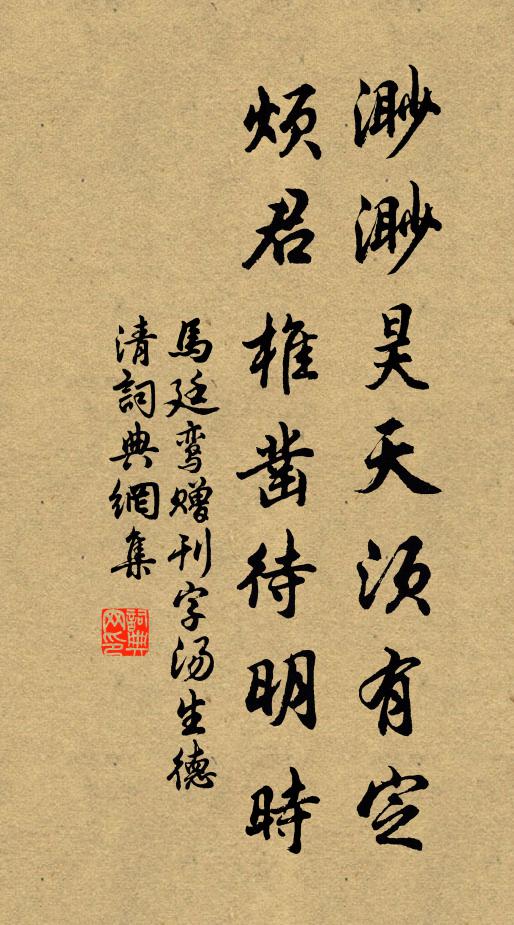 渺渺昊天须有定
烦君椎凿待明時
馬廷鸾赠刊字汤生德
清詞典網集
詞典网印